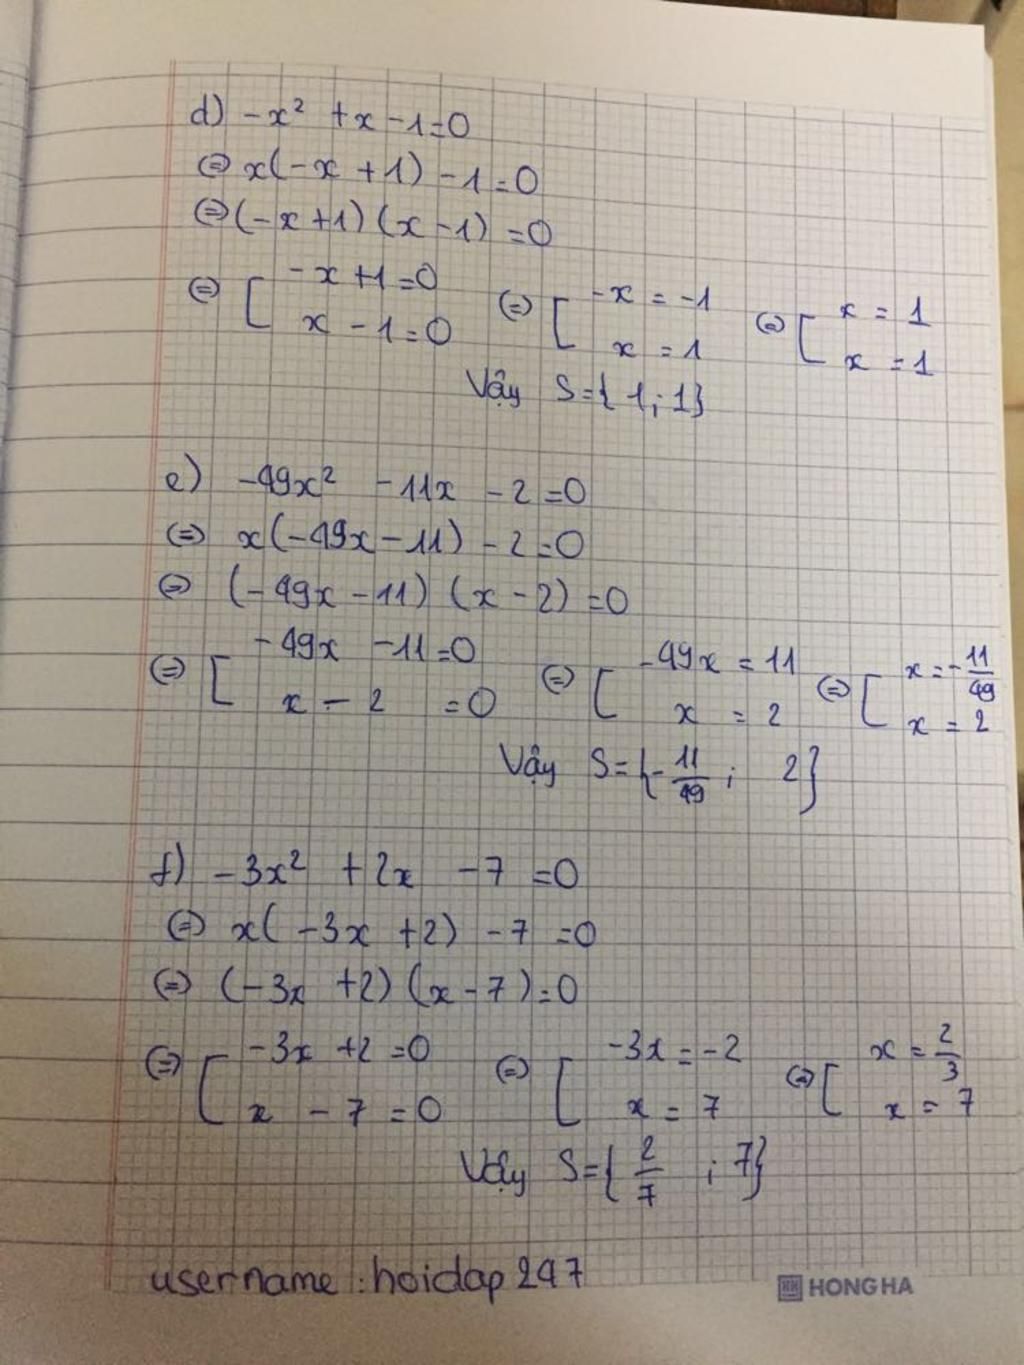 d) -x² + x - 1 = 0
⇔ x(-x + 1) - 1 = 0
⇔ (-x + 1) (x - 1) = 0
⇔ [ -x + 1 = 0 ⇔ [ -x = -1 ⇔ [ x = 1
x - 1 = 0 x = 1 x = 1
Vậy S = { 1 ; 1 }
e) -49x² - 11x - 2 = 0
⇔ x(-49x - 11) - 2 = 0
⇔ (-49x - 11) (x - 2) = 0
⇔ [ -49x - 11 = 0 ⇔ [ -49x = 11 ⇔ [ x = -11/49
x - 2 = 0 x = 2 x = 2
Vậy S = { -11/49 ; 2 }
f) -3x² + 2x - 7 = 0
⇔ x( -3x + 2) - 7 = 0
⇔ (-3x + 2) (x - 7) = 0
⇔ [ -3x + 2 = 0 ⇔ [ -3x = -2 ⇔ [ x = 2/3
x - 7 = 0 x = 7 x = 7
Vậy S = { 2/7 ; 7 }
username : hoidap 247
HONG HA